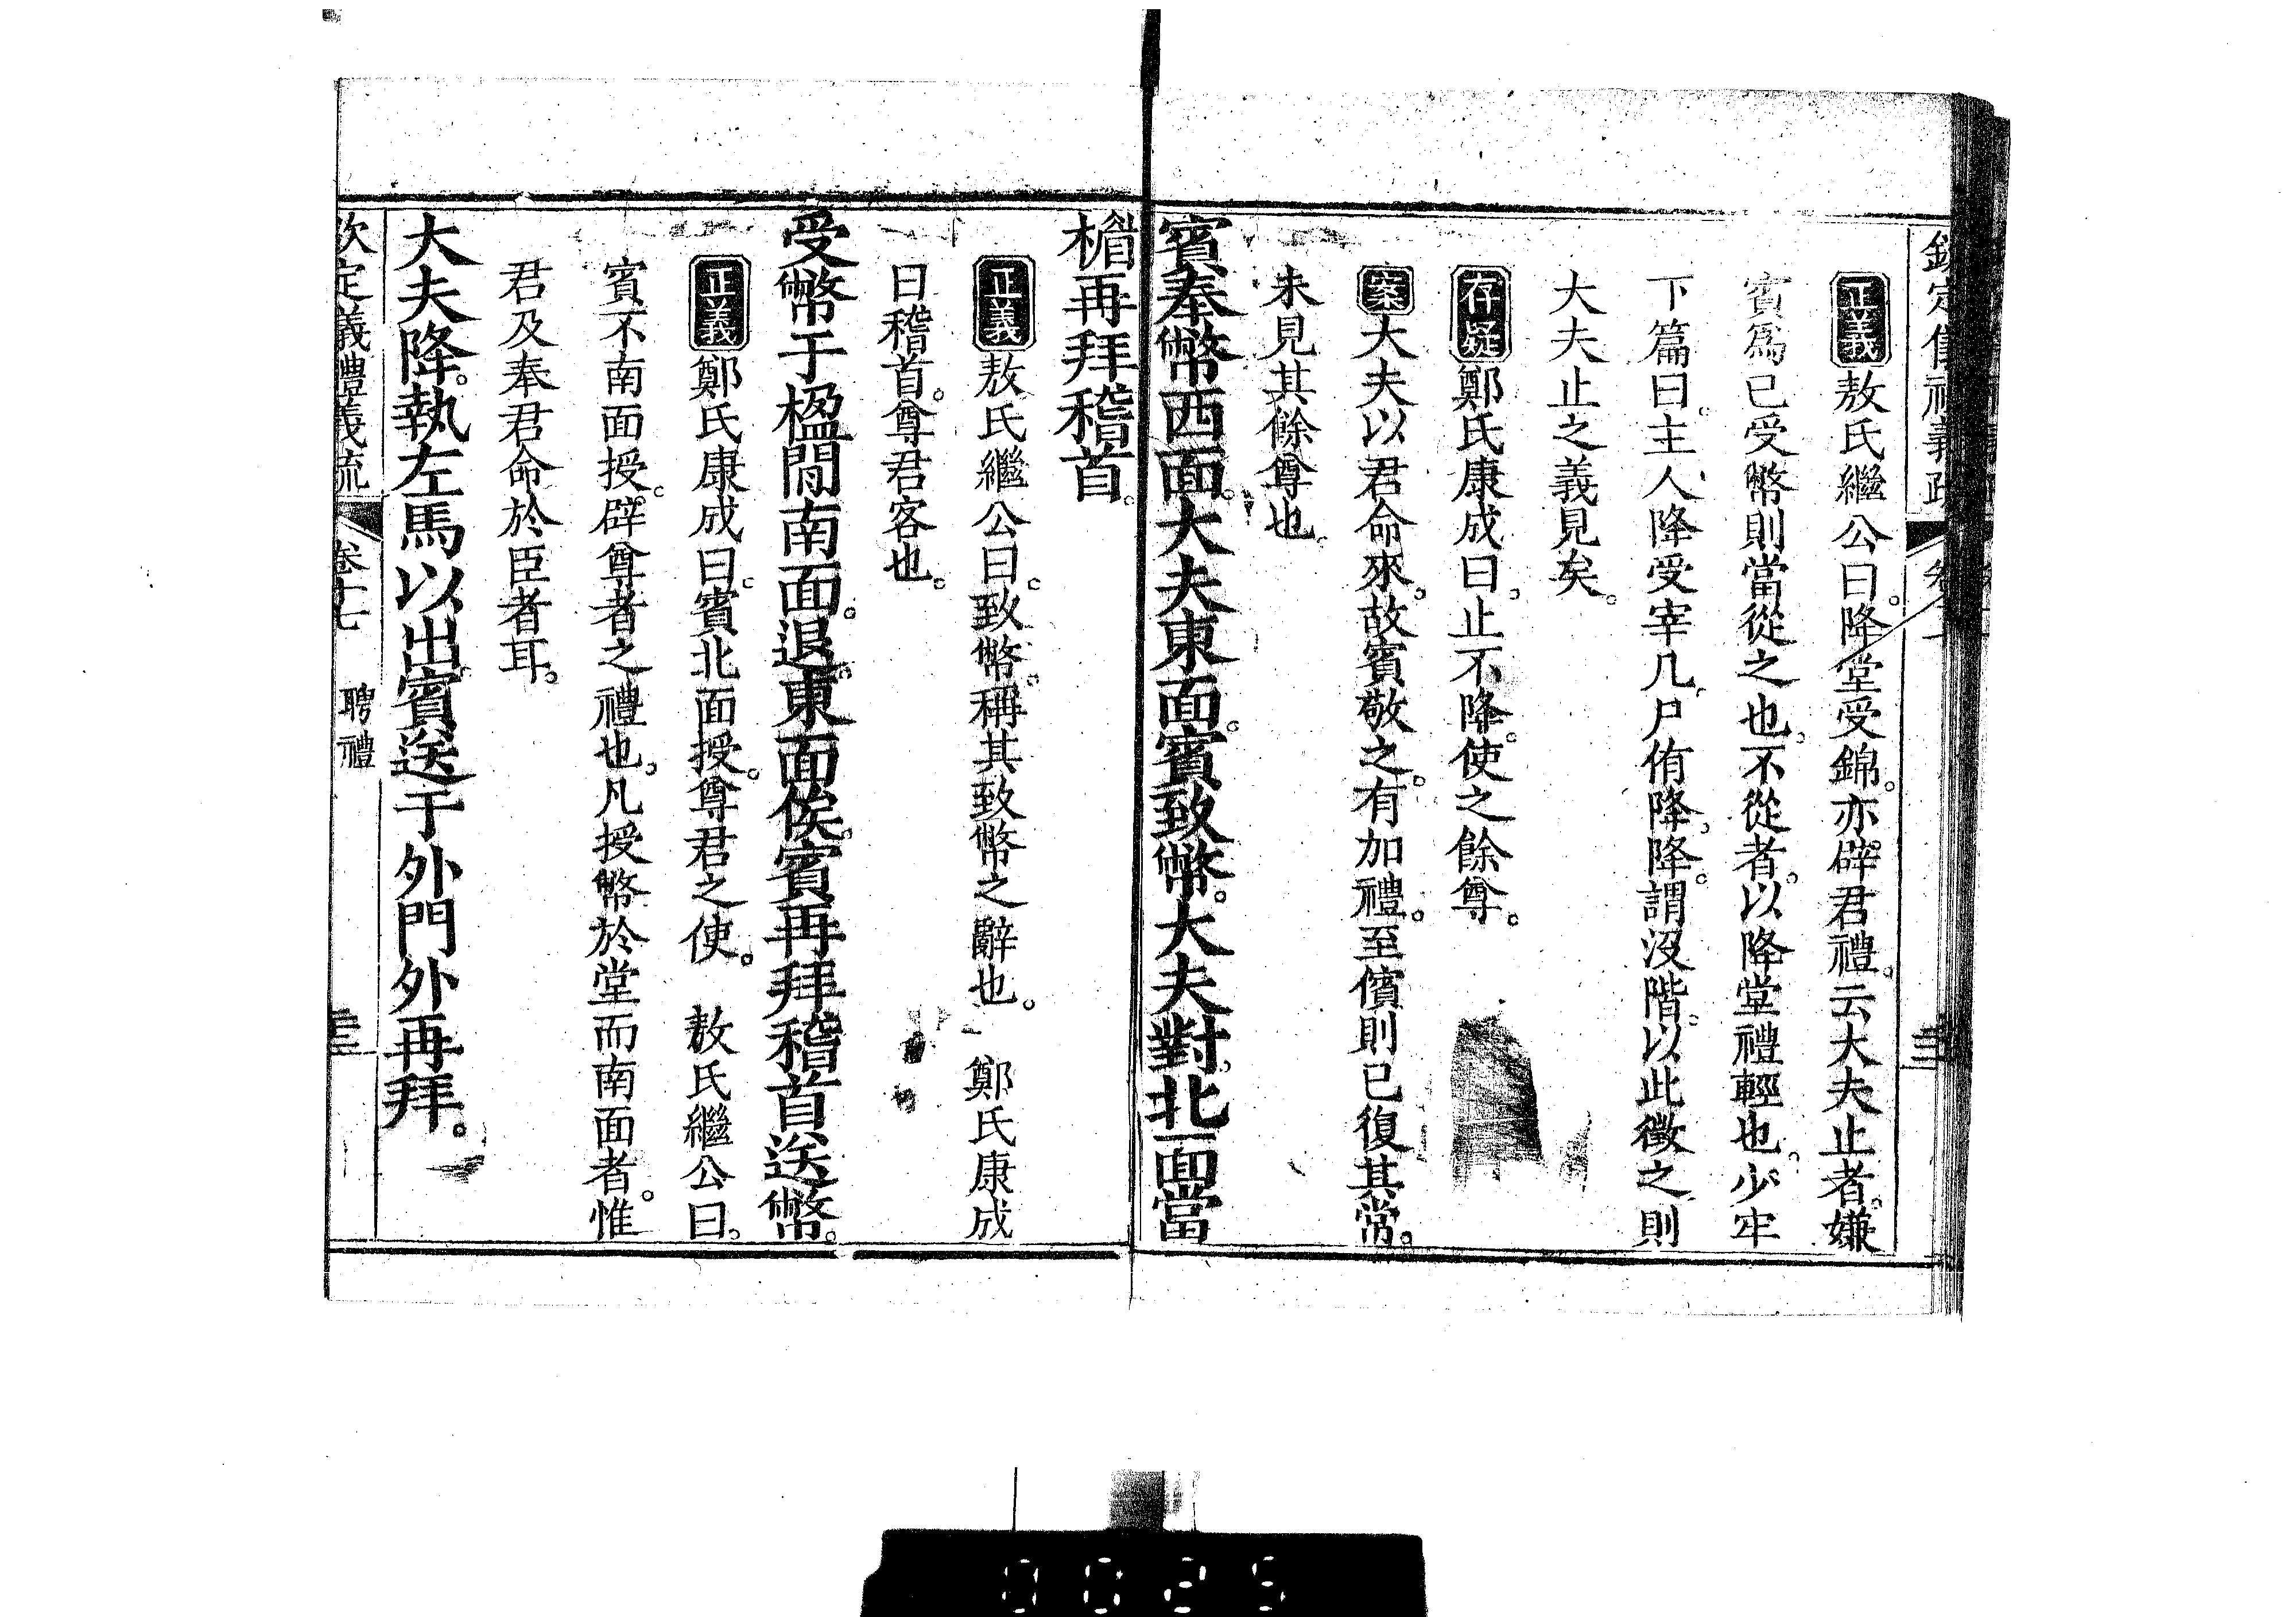 欽定儀禮義疏
正義敖氏繼公曰降堂受錦亦辟君禮云大夫止者嫌
賓爲已受幣則當從之也不從者以降堂禮輕也少牢
下篇曰主人降受宰几尸侑降降謂沒階以此徵之則
大夫止之義見矣
存疑鄭氏康成曰止不降使之餘尊
案大夫以君命來故賓敬之有加禮至儐則已復其常
未見其餘尊也
賓奉幣西面大夫東面賓致幣大夫對北面當
楣再拜稽首
正義敖氏繼公曰致幣稱其致幣之辭也 鄭氏康成
曰稽首尊君客也
受幣于楹閒南面退東面俟賓再拜稽首送幣
正義鄭氏康成曰賓北面授尊君之使 敖氏繼公曰
賓不南面授辟尊者之禮也凡授幣於堂而南面者惟
君及奉君命於臣者耳
大夫降執左馬以出賓送于外門外再拜
欽定義禮義疏 卷十七 聘禮